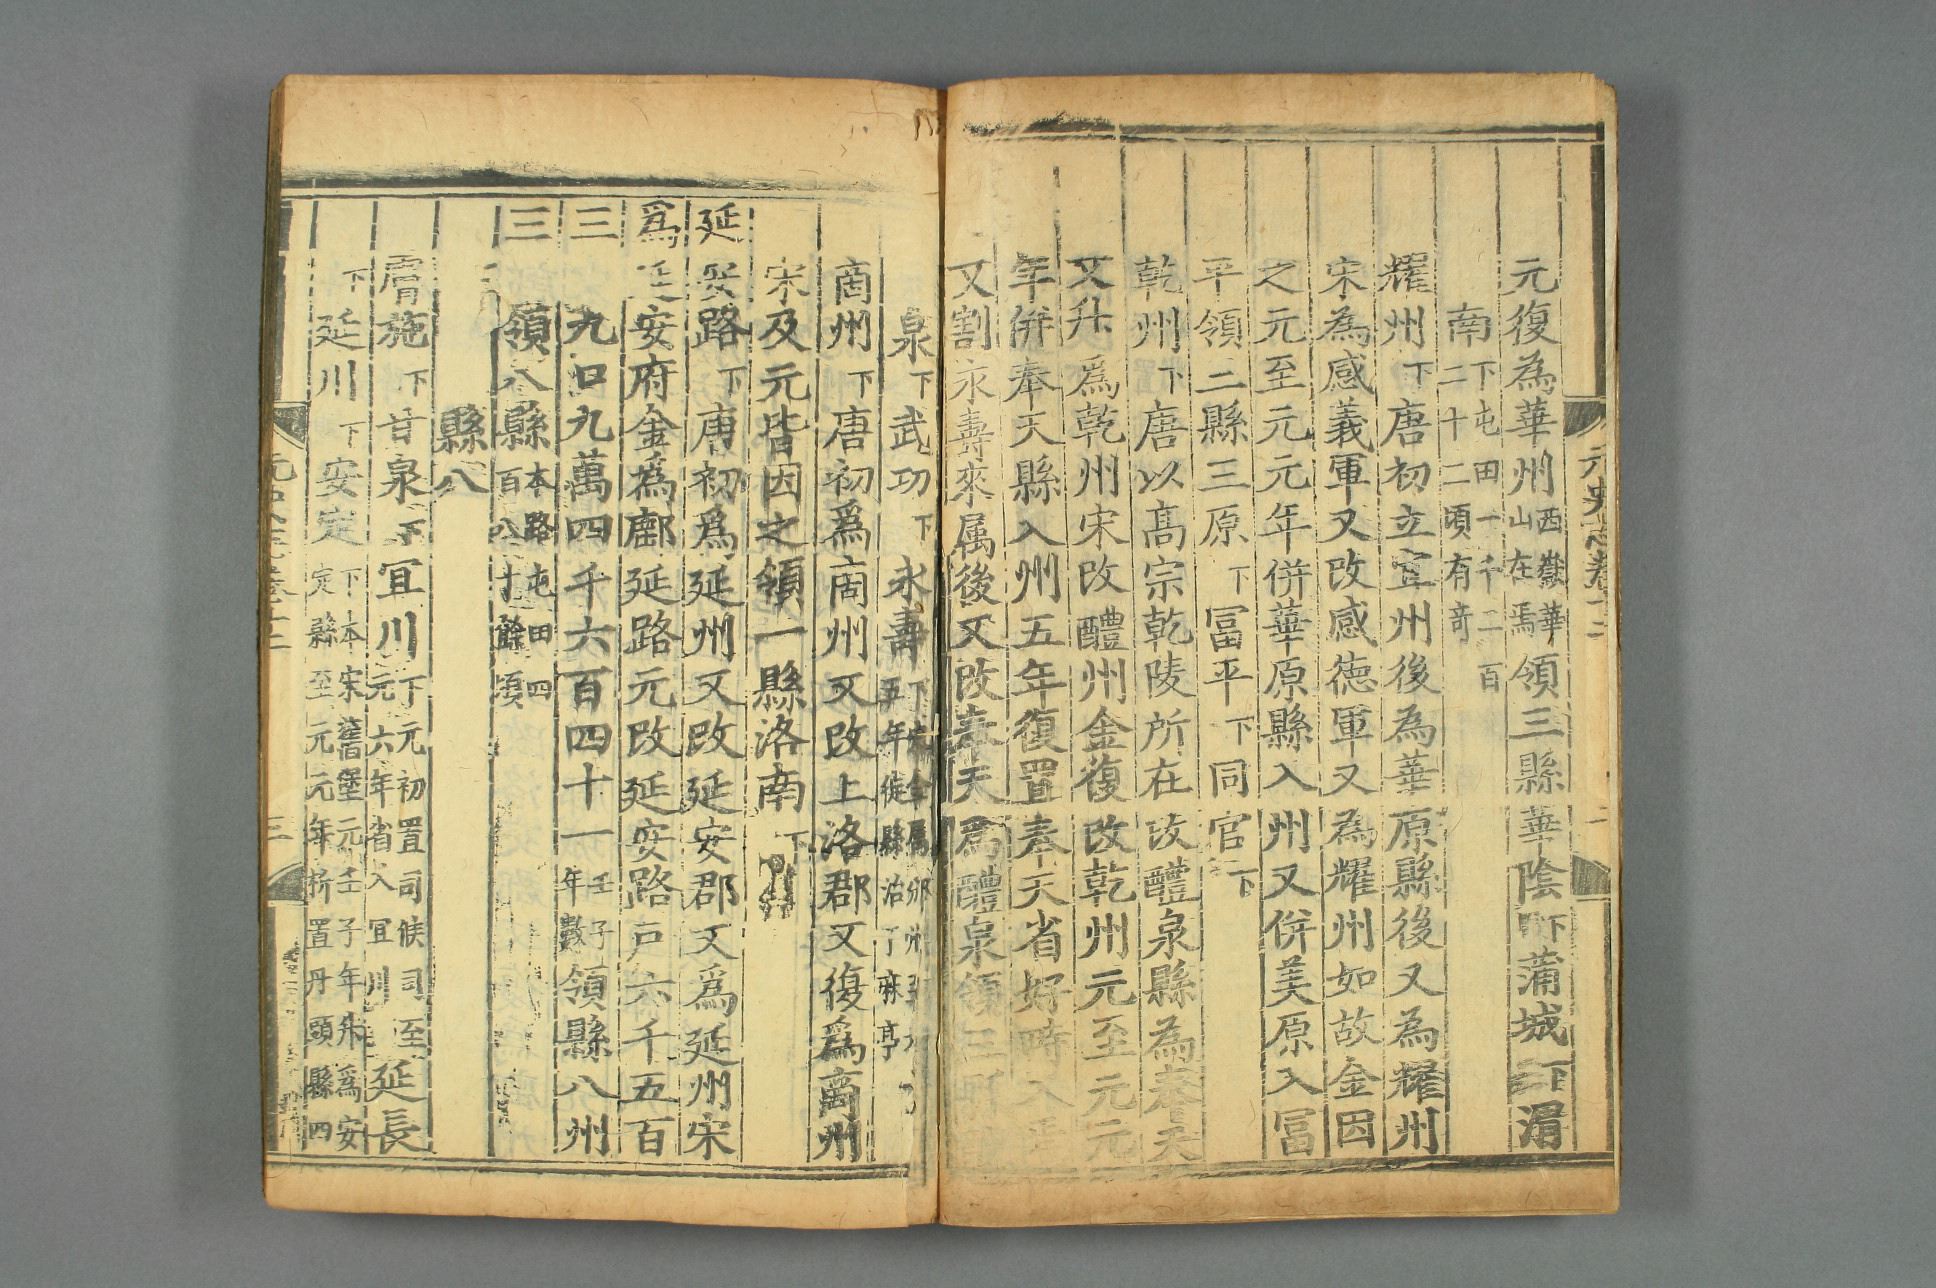 元史志卷十二 二
元復為華州西嶽華山在焉領三縣華陰下蒲城下渭
南下屯田一千二百二十二頃有奇
耀州下唐初立宜州後為華原縣後又為耀州
宋為感義軍又改感德軍又為耀州如故金因
之元至元元年併華原縣入州又併美原入冨
平領二縣三原下冨平下同官下
乾州下唐以高宗乾陵所在改醴泉縣為奉天
又升為乾州宋改醴州金復改乾州元至元元
年併奉天縣入州五年復置奉天省好時入焉
又割永壽來属後又改奉天為醴泉領三縣醴
泉下武功下永壽下宋金属邠州至元五年徙縣治于麻亭
商州下唐初爲商州又改上洛郡又復爲商州
宋及元皆因之領一縣洛南下
延安路下唐初爲延州又改延安郡又爲延州宋
爲延安府金爲鄜延路元改延安路戸六千五百
三九口九萬四千六百四十一壬子年數領縣八州
三領八縣本路屯田四百八十餘頃
縣八
膚施下甘泉下宜川下元初置司候司至元六年省入宜川延長
下延川下安定下本宋舊堡元壬子年升爲安定縣至元元年析置丹頭縣四
三